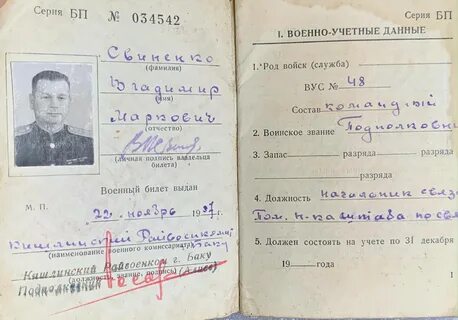 Серия БП № 034542
Свиненко
(фамилия)
Владимир
(имя)
Маркович
(отчество)
(личная подпись владельца
билета)
Военный билет выдан
М. П.
22 ноябрь 1957 г.
Кишлинский Райвоенкомат
г. Баку
(наименование военного комиссариата)
Кишлинский Райвоенком г. Баку
(должность, звание, подпись)
Подполковник
Серия БП
I. ВОЕННО-УЧЕТНЫЕ ДАННЫЕ
1. Род войск (служба)
ВУС № 48
Состав командный
2. Воинское звание Подполковник
3. Запас разряда
разряда
4. Должность начальник связи
Пом. н-ка штаба по св
5. Должен состоять на учете по 31 декабря
19 года
1